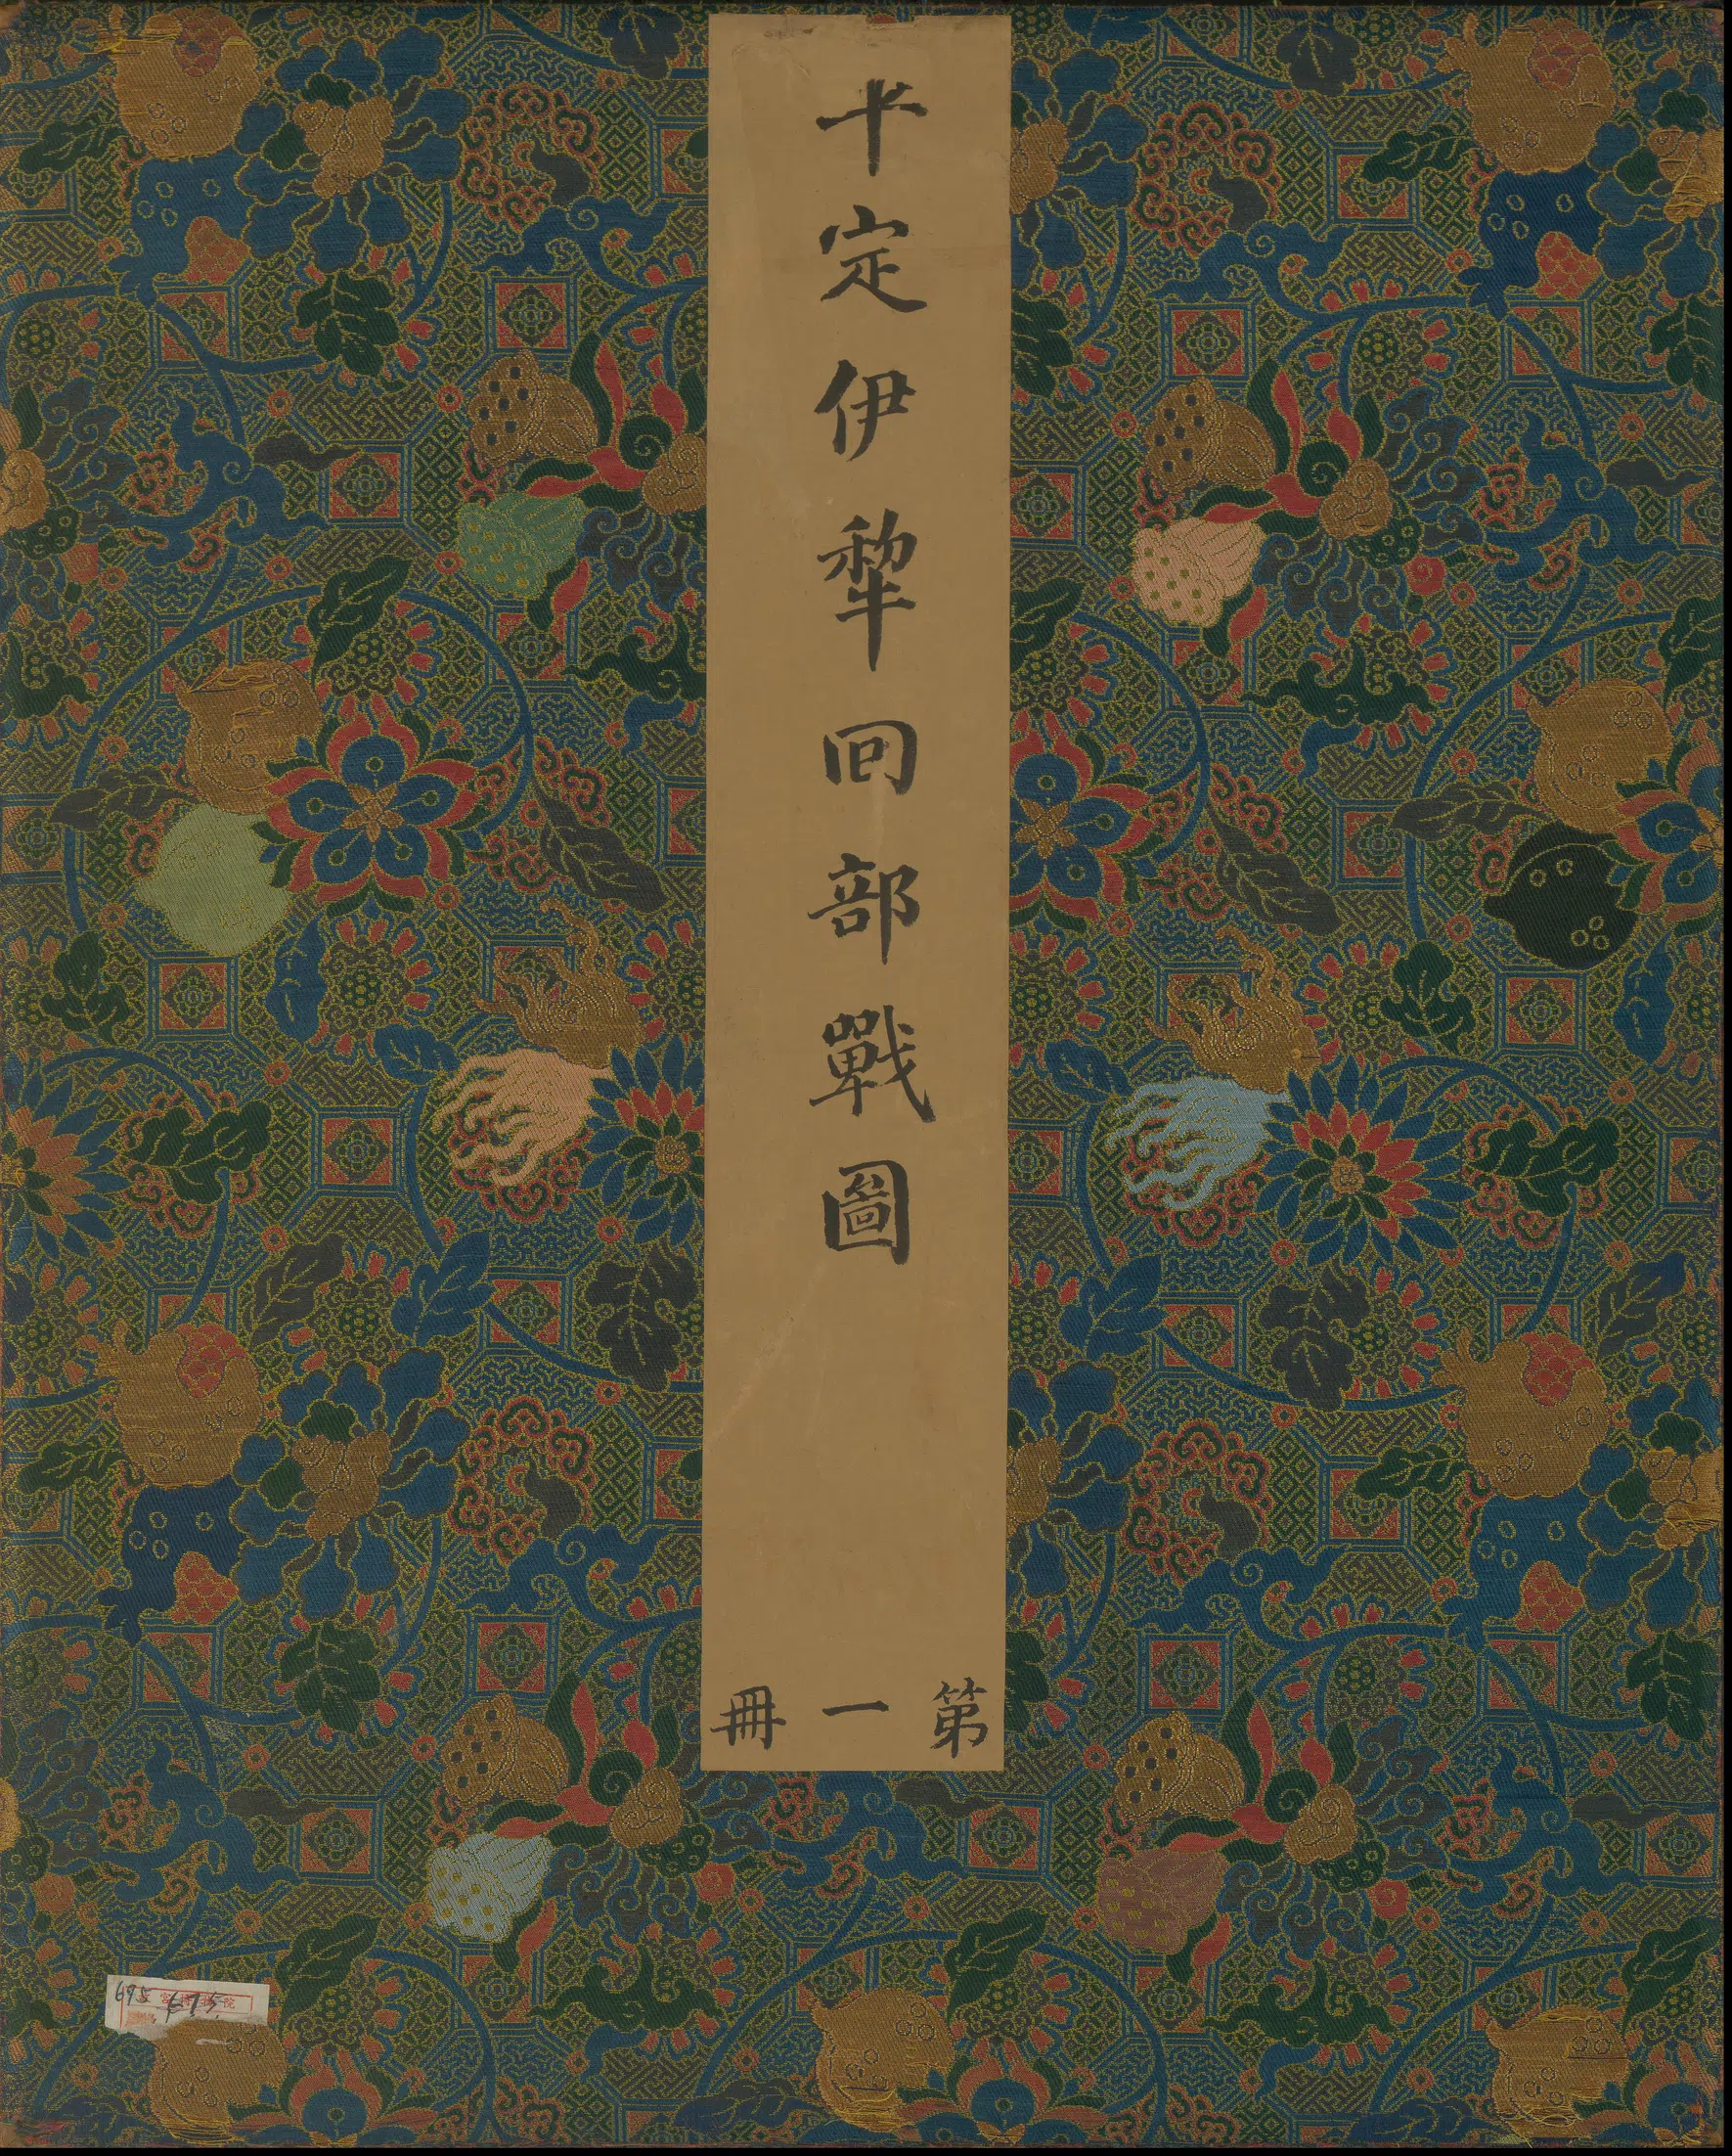 平定伊犂回部戰圖
第一冊
695
675